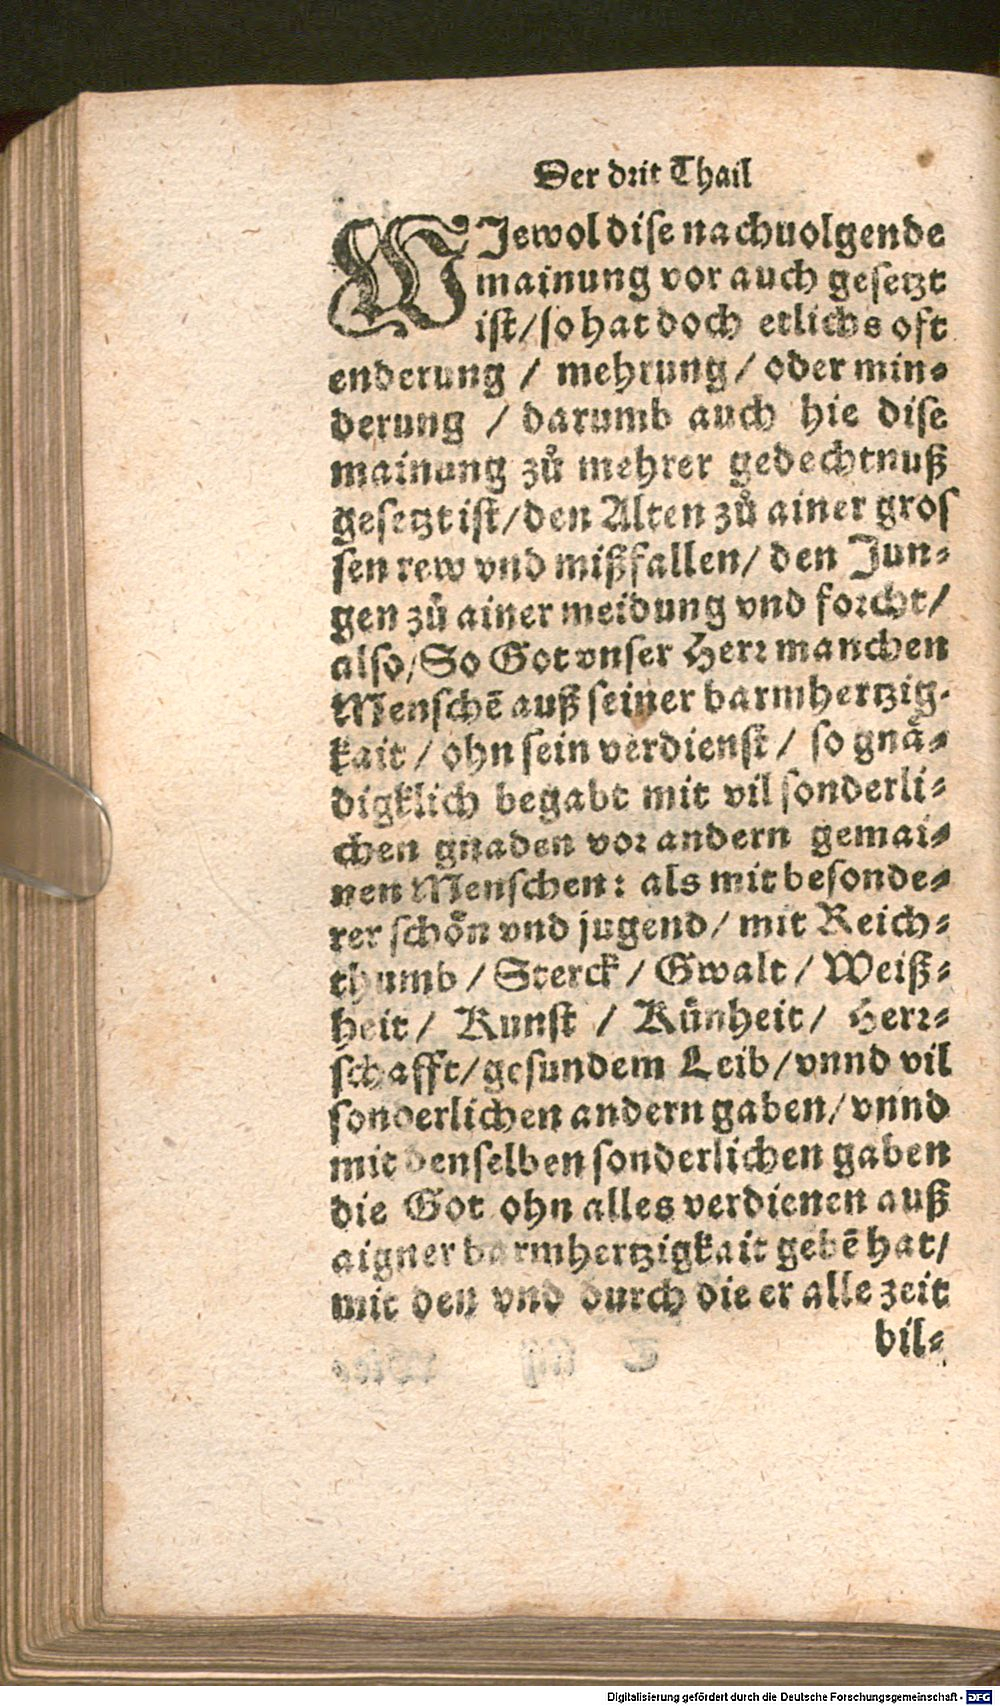 Der drit Thail
WJewol dise nachuolgende
mainung vor auch gesetzt
ist/so hat doch etlichs oft
enderung / mehrung/ oder min⸗
derung / darumb auch hie dise
mainung zů mehrer gedechtnuß
gesetzt ist/den Alten zů ainer gros
sen rew vnd mißfallen/ den Jun⸗
gen zů ainer meidung vnd forcht/
also/So Got vnser Herr manchen
Menschẽ auß seiner barmhertzig-
kait / ohn sein verdienst / so gnå⸗
digklich begabt mit vil sonderli⸗
chen gnaden vor andern gemai⸗
nen Menschen: als mit besonde⸗
rer schön vnd jugend/ mit Reich⸗
thumb / Sterck / Gwalt / Weiß⸗
heit / Kunst / Künheit/ Herr⸗
schafft/gesundem Leib/vnnd vil
sonderlichen andern gaben/vnnd
mit denselben sonderlichen gaben
die Got ohn alles verdienen auß
aigner barmhertzigkait gebẽ hat/
mit den vnd durch die er alle zeit
bil⸗
Digitalisierung gefördert durch die Deutsche Forschungsgemeinschaft - DFG